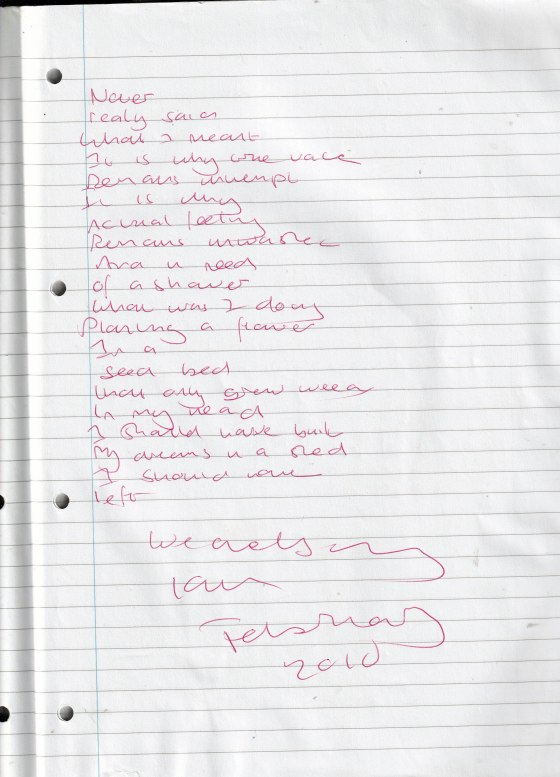 Never
realy said
What I meant
It is why
Remains unkempt
It is why
Actual feeling
Remains unwashed
And in need
of a shower
What was I doing
Planting a flower
In a
seed bed
that only grew weed
In my head
I should have built
My dreams in a shed
I should have
left
Wednesday
10th
February
2010